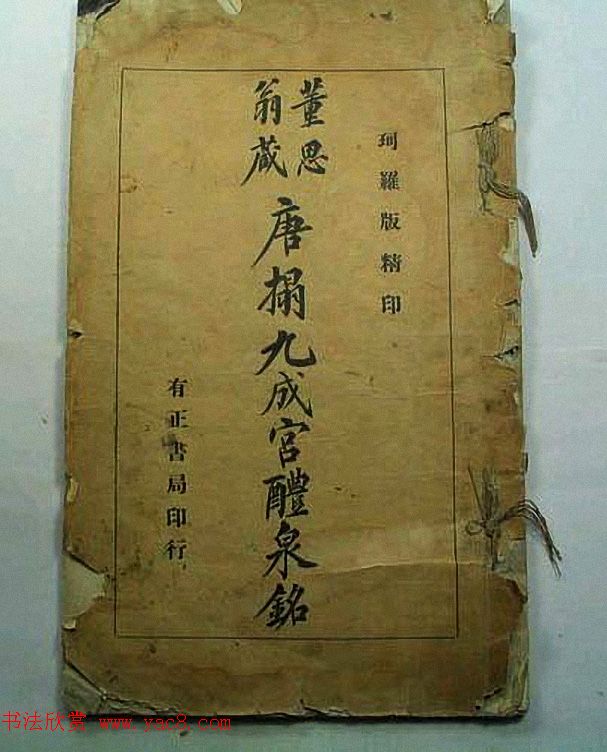 珂羅版精印
董思
翁藏
唐搨九成宮醴泉銘
有正書局印行
书法欣赏 www.yac8.com